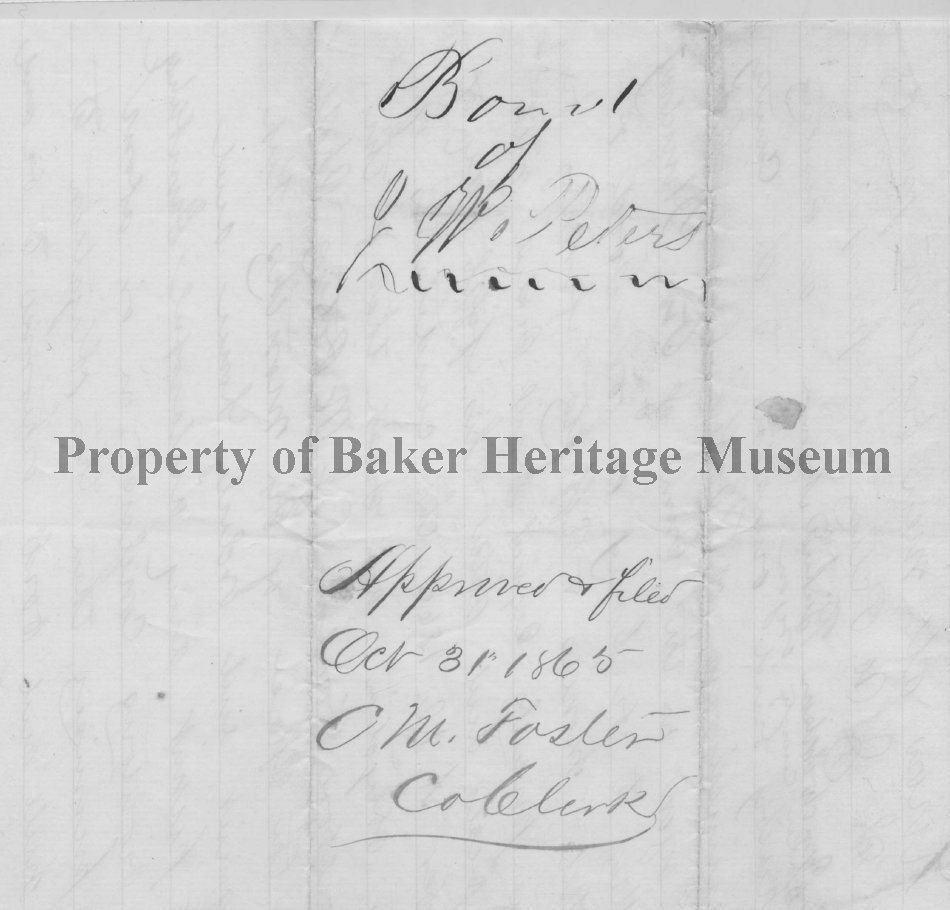 Bond
of
J. W. Peters
Property of Baker Heritage Museum
Approved & filed
Oct 31st 1865
C M. Foster
Co Clerk